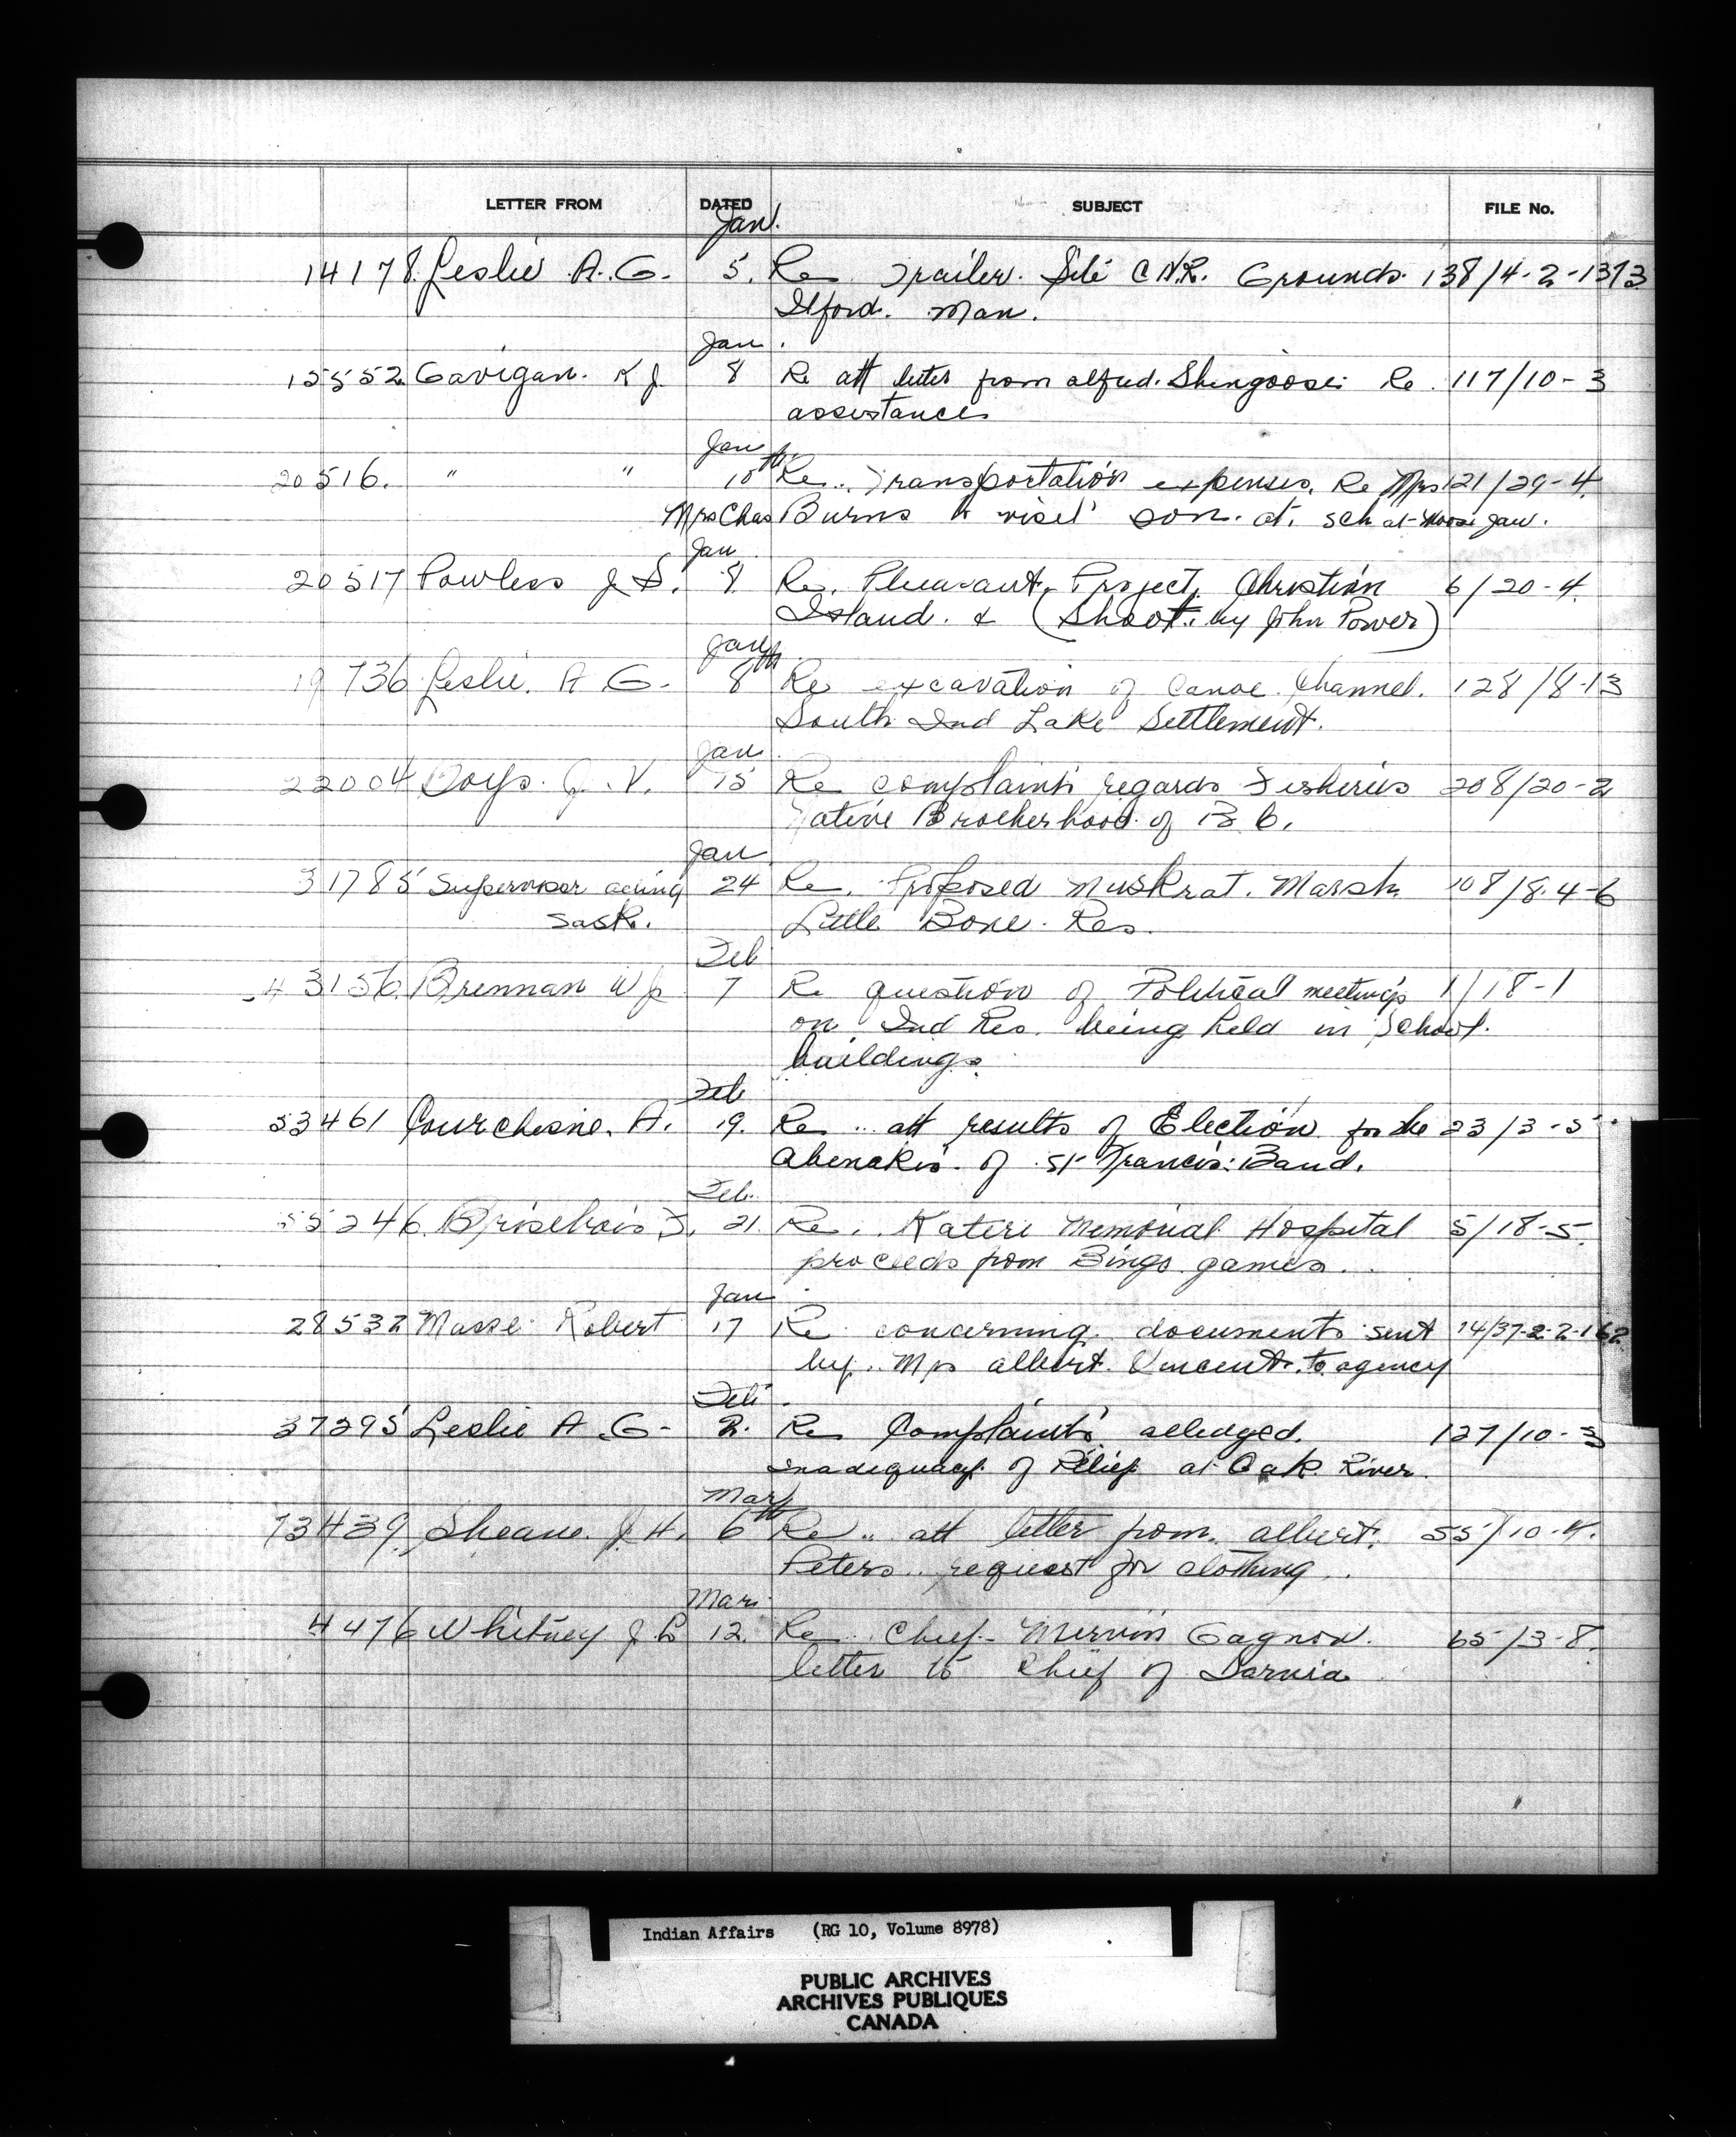 LETTER FROM DATED SUBJECT FILE No.
Jan.
14178. Leslie A. G. 5. Re Trailer Site C.N.R. Grounds. 138/4-2-13
Ilford. Man.
Jan.
15552. Gavigan. K J. 8 Re att letter from alfred. Shingoose. Re. 117/10-3
assistance
Jan
20516. " " 10th Re.. Transportation expenses. Re Mrs 121/29-4.
Mrs Chas Burns to visit son. at. sch at Moose Jaw.
Jan
20517 Powless J S. 8 Re. Pheasant. Project. Christian 6/20-4.
Island. & (Shoot. by John Power)
Jan
19736 Leslie. A G. 8th Re excavation of Canoe Channel. 128/8-13
South Ind Lake Settlement.
Jan
22004 Boys. J. V. 15 Re complaints regards Fisheries 208/20-2
Native Brotherhood of B C.
Jan
31785 Supervisor acting 24 Re. Proposed muskrat. Marsh 108/8.4-6
Sask. Little Bone. Res.
Feb
43156. Brennan W J. 7 Re question of Political meetings 1/18-1
on Ind Res. being held in School.
buildings.
Feb
53461 Courchesne. A. 19. Re .. att results of Election for the 23/3-5
Abenakis. of St Francis: Band.
Feb.
55246. Brisebois J. 21. Re.. Kateri Memorial Hospital 5/18-5.
proceeds from Bingo games..
Jan
28532 Masse Robert 17 Re concerning documents sent 14/37-2-2-162
by.. Mrs albert. Vincent. to agency
Feb.
37295 Leslie A. G- 2. Re Complaints alledged. 127/10-3
inadequacy of Relief at Oak River.
Mar
73439. Sheane. J. H. 6th Re.. att letter from. albert. 55/10-4.
Peters.. request for clothing..
Mar
4476 Whitney J L 12. Re.. Chief- Mervin Gagnon. 65/3-8.
letter to Chief of Sarnia
Indian Affairs (RG 10, Volume 8978)
PUBLIC ARCHIVES
ARCHIVES PUBLIQUES
CANADA